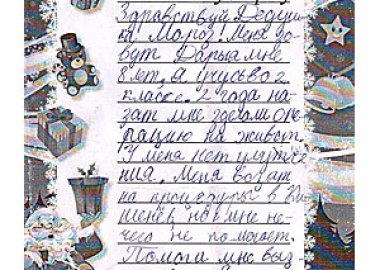 Здравствуй Дедуш
ка Мороз! Меня зо-
вут Дарья мне
8 лет, я учусь во 2
классе. 2 года на-
зат мне зделали опе
рацию на живот.
У меня нет улутше
ния. Меня возят
на процедуры в Ки
шенёв, но мне не-
чего не помогает.
Помоги мне выз-